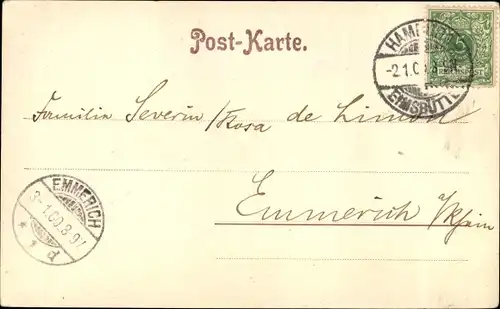 Post-Karte.
HAMBURG
-2.1.0
EIMSBÜTTEL
5
Familie Severin/Rosa de Limon
EMMERICH
3-1.00.8-9V
* 1 d
Emmerich a/Rhein